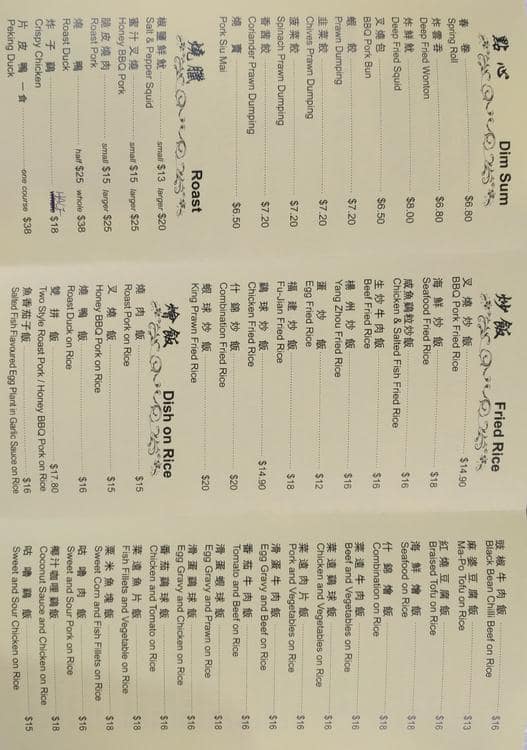 點心
Dim Sum
春卷
Spring Roll $6.80
炸雲吞
Deep Fried Wonton $6.80
炸鮮魷
Deep Fried Squid $8.00
叉燒包
BBQ Pork Bun $6.50
蝦餃
Prawn Dumping $7.20
韭菜餃
Chives Prawn Dumping $7.20
菠菜餃
Spinach Prawn Dumping $7.20
香茜餃
Coriander Prawn Dumping $7.20
燒賣
Pork Siu Mai $6.50
燒臘
Roast
椒鹽鮮魷
Salt & Pepper Squid small $13 larger $20
蜜汁叉燒
Honey BBQ Pork small $15 larger $25
脆皮燒肉
Roast Pork small $15 larger $25
燒鴨
Roast Duck half $25 whole $38
炸子鷄
Crispy Chicken HALF $18
片皮鴨一食
Peking Duck one course $38
炒飯
Fried Rice
叉燒炒飯
BBQ Pork Fried Rice $14.90
海鮮炒飯
Seafood Fried Rice $18
咸魚鷄粒炒飯
Chicken & Salted Fish Fried Rice $16
生炒牛肉飯
Beef Fried Rice $16
楊州炒飯
Yang Zhou Fried Rice $16
蛋炒飯
Egg Fried Rice $12
福建炒飯
Fu-Jian Fried Rice $18
鷄球炒飯
Chicken Fried Rice $14.90
什錦炒飯
Combination Fried Rice $20
蝦球炒飯
King Prawn Fried Rice $20
燴飯
Dish on Rice
燒肉飯
Roast Pork on Rice $15
叉燒飯
Honey BBQ Pork on Rice $15
燒鴨飯
Roast Duck on Rice $16
雙拼飯
Two Style Roast Pork / Honey BBQ Pork on Rice $17.80
魚香茄子飯
Salted Fish Flavoured Egg Plant in Garlic Sauce on Rice $16
豉椒牛肉飯
Black Bean Chilli Beef on Rice $16
麻婆豆腐飯
Ma-Po Tofu on Rice $13
紅燒豆腐飯
Braised Tofu on Rice $16
海鮮燴飯
Seafood on Rice $18
什錦燴飯
Combination on Rice $18
菜遠牛肉飯
Beef and Vegetables on Rice $16
菜遠鷄球飯
Chicken and Vegetables on Rice $16
菜遠肉片飯
Pork and Vegetables on Rice $16
滑蛋牛肉飯
Egg Gravy and Beef on Rice $16
番茄牛肉飯
Tomato and Beef on Rice $16
滑蛋蝦球飯
Egg Gravy and Prawn on Rice $18
滑蛋鷄球飯
Egg Gravy and Chicken on Rice $16
番茄鷄球飯
Chicken and Tomato on Rice $16
菜遠魚片飯
Fish Fillets and Vegetable on Rice $18
粟米魚塊飯
Sweet Corn and Fish Fillets on Rice $18
咕嚕肉飯
Sweet and Sour Pork on Rice $16
椰汁咖哩鷄飯
Coconut Sauce and Chicken on Rice $18
咕嚕鷄飯
Sweet and Sour Chicken on Rice $15